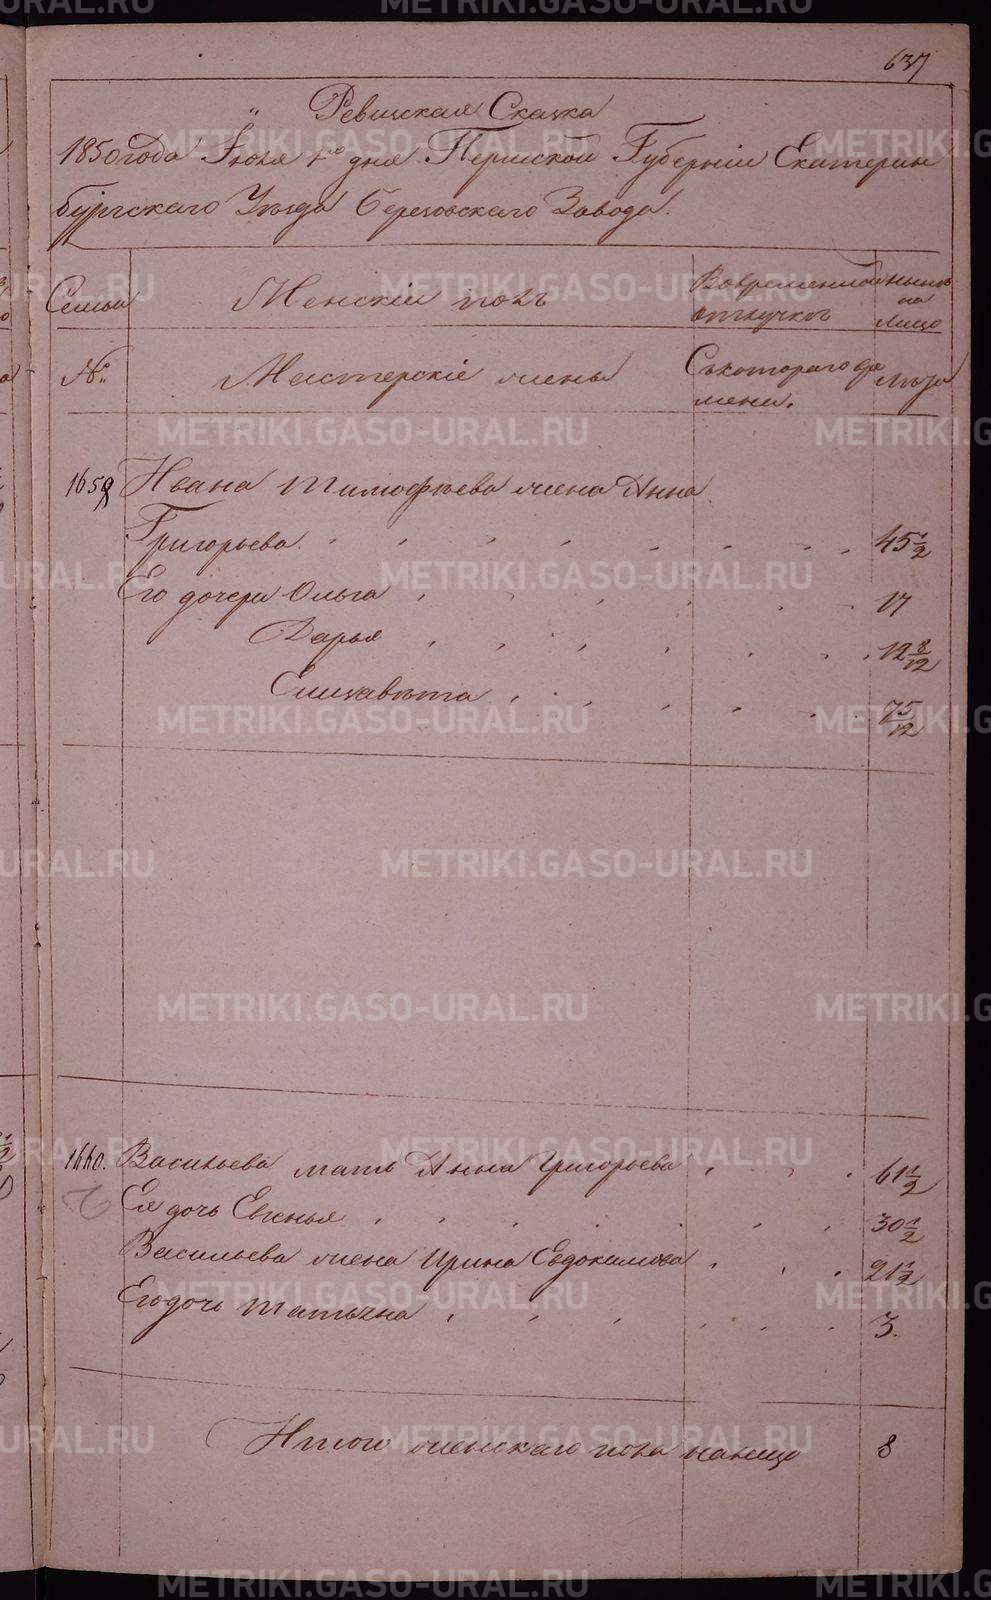 637
Ревижская Сказка
1850 года Іюля 1го дня Пермской Губерніи Екатерин
бургскаго Уезда Березовскаго Завода.
Семьи
Женскій полъ
Во временной
отлучкѣ
Нынѣ
на
лицо
№.
Мастерскіе жены
Съ котораго вре
мени.
Лѣта
1659 Ивана Тимофѣева жена Анна
Григорьева 45 1/2
Его дочери Ольга 17
Дарья 12 8/12
Елизавѣта 7 5/12
1660. Васильева мать Анна Григорьева 61 1/2
Ея дочь Евгенья 30 1/2
Васильева жена Ирина Евдокимова 21 1/2
Его дочь Татьяна 3.
Итого женскаго пола налицо 8
METRIKI.GASO-URAL.RU